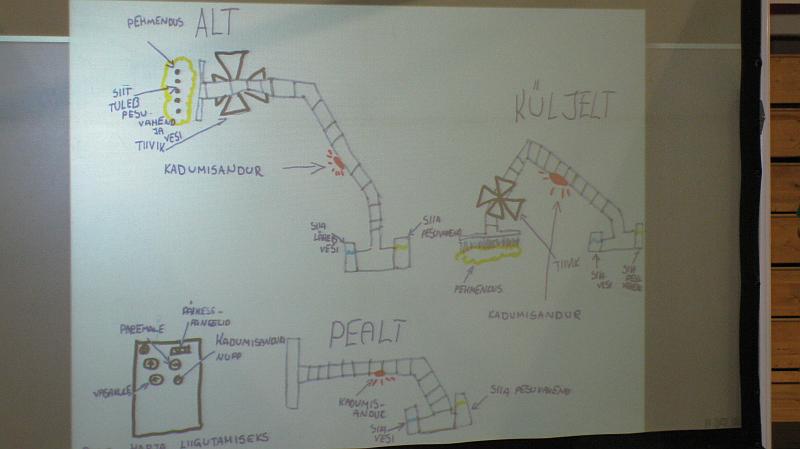 PEHMENDUS
ALT
SIIT
TULEB
PESU-
VAHEND
JA
VESI
TIIVIK
KADUMISANDUR
SIIA
LÄHEB
VESI
SIIA
PESUVAHEND
KÜLJELT
PEHMENDUS
TIIVIK
SIIA
VESI
SIIA
PESU
VAHEND
KADUMISANDUR
PÄIKESE-
PANEELID
PAREMALE
KADUMISANDURI
NUPP
VASAKULE
HARJA LIIGUTAMISEKS
PEALT
KADUMIS-
ANDUR
SIIA
VESI
SIIA PESUVAHEND